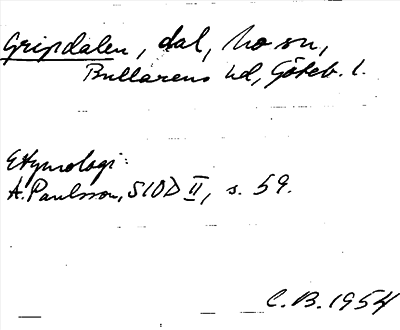 Gripdalen, dal, Mo sn,
Bullarens hd, Göteb. l.
Etymologi:
A. Paulsson, SIOD II, s. 59.
C. B. 1954